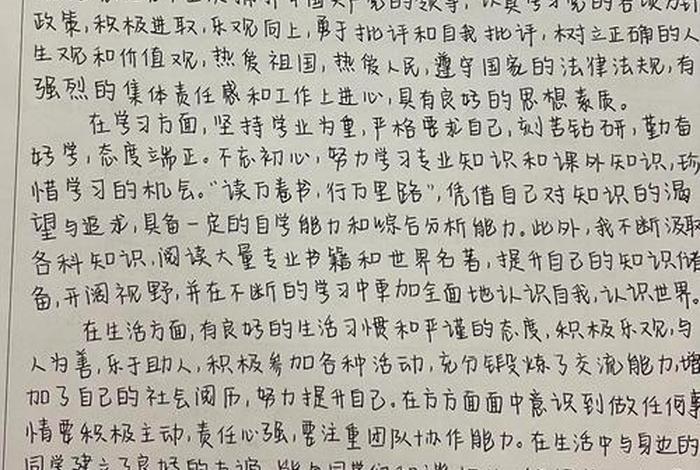 政策,积极进取,乐观向上,勇于批评和自我批评,树立正确的人
生观和价值观,热爱祖国,热爱人民,遵守国家的法律法规,有
强烈的集体责任感和工作上进心,具有良好的思想素质。
在学习方面,坚持学业为重,严格要求自己,刻苦钻研,勤奋
好学,态度端正。不忘初心,努力学习专业知识和课外知识,珍
惜学习的机会。“读万卷书,行万里路”,凭借自己对知识的渴
望与追求,具备一定的自学能力和综合分析能力。此外,我不断汲取
各科知识,阅读大量专业书籍和世界名著,提升自己的知识储
备,开阔视野,并在不断的学习中更加全面地认识自我,认识世界。
在生活方面,有良好的生活习惯和严谨的态度,积极乐观,与
人为善,乐于助人,积极参加各种活动,充分锻炼了交流能力,增
加了自己的社会阅历,努力提升自己。在方方面面中意识到做任何事
情要积极主动,责任心强,要注重团队协作能力。在生活中与身边的
同学建立了良好的友谊